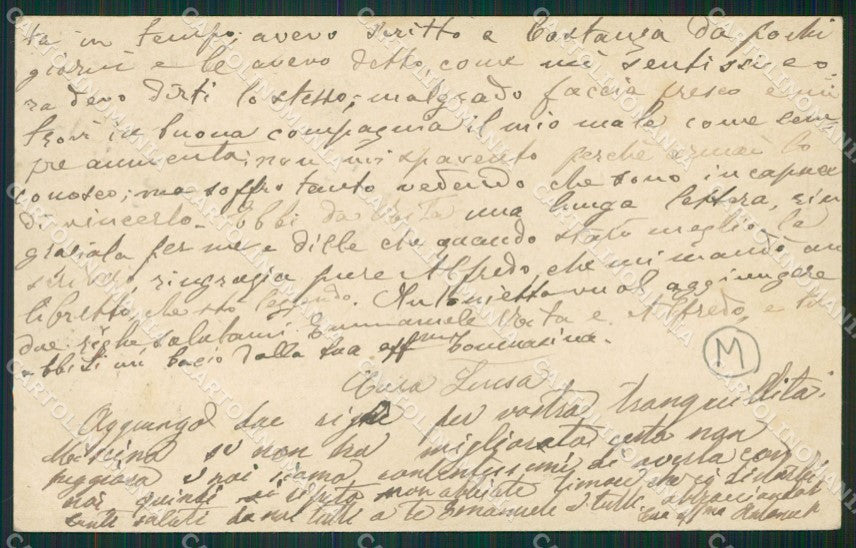 ta in tempo; avevo scritto a Costanza da pochi
giorni e le avevo detto come mi sentissi e o-
ra devo dirti lo stesso; malgrado faccia fresco e mi
trovi in buona compagnia il mio male come sem
pre aumenta; non mi spavento perchè ormai lo
conosco; ma soffro tanto vedendo che sono incapace
di vincerlo. Ebbi da una lunga lettera, rin
graziala per me e dille che quando starò meglio le
scriverò, ringrazia pure Alfredo, che mi mandò un
libretto, che sto leggendo. Antonietta vuol aggiungere
due righe salutami Emmanuele e Alfredo, e tu
abbiti un bacio dalla tua aff.ma Tommasina.
Cara
Aggiungo due righe per vostra tranquillità.
se non ha migliorato certo non
peggiora e noi siamo contentissimi di averla con
noi, quindi ti ripeto non abbiate timore
tanti saluti da noi tutti a te Emanuele e tutti
M